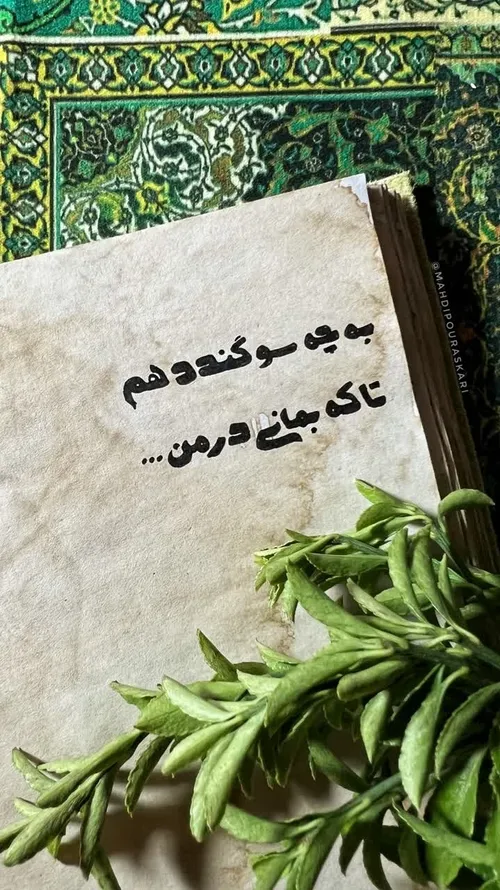 به چه سوگند دهم
تا که بمانی در من...
@MAHDIPOURASKARI